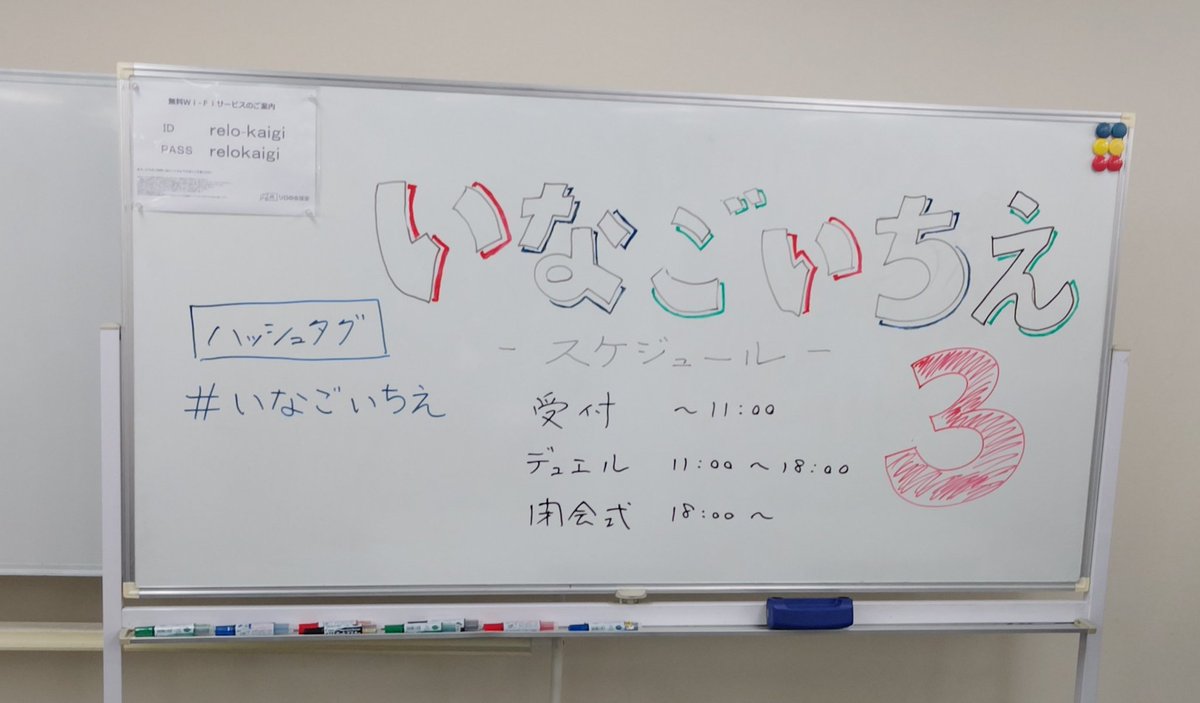 無料Wi-Fiサービスのご案内
ID relo-kaigi
PASS relokaigi
いなごいちえ
3
ハッシュタグ
#いなごいちえ
- スケジュール -
受付 ~11:00
デュエル 11:00~18:00
閉会式 18:00~